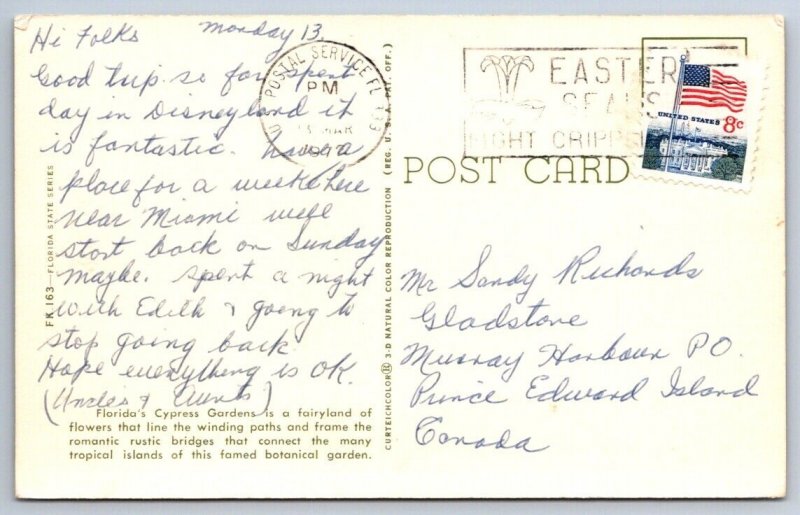 Hi Folks Monday 13.
Good trip so far spent
day in Disneyland it
is fantastic. have a
place for a week here
near Miami well
start back on Sunday
maybe. spent a night
with Edith & going to
stop going back
Hope everything is OK.
(Uncles & Aunts)
Florida's Cypress Gardens is a fairyland of
flowers that line the winding paths and frame the
romantic rustic bridges that connect the many
tropical islands of this famed botanical garden.
FK 163—FLORIDA STATE SERIES
CURTEICHCOLOR 3-D NATURAL COLOR REPRODUCTION (REG. U. S. A. PAT. OFF.)
U POSTAL SERVICE FL 333
PM
13 MAR
EASTER
SEALS
FIGHT CRIPPL
UNITED STATES 8c
POST CARD
Mr Sandy Richards
Gladstone
Murray Harbour PO.
Prince Edward Island
Canada